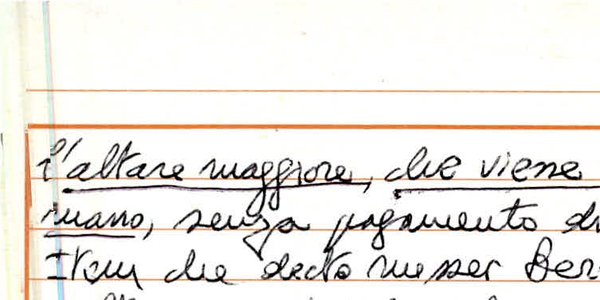 l'altare maggiore, che viene
mano, senza pagamento di
Item che decto messer Ber